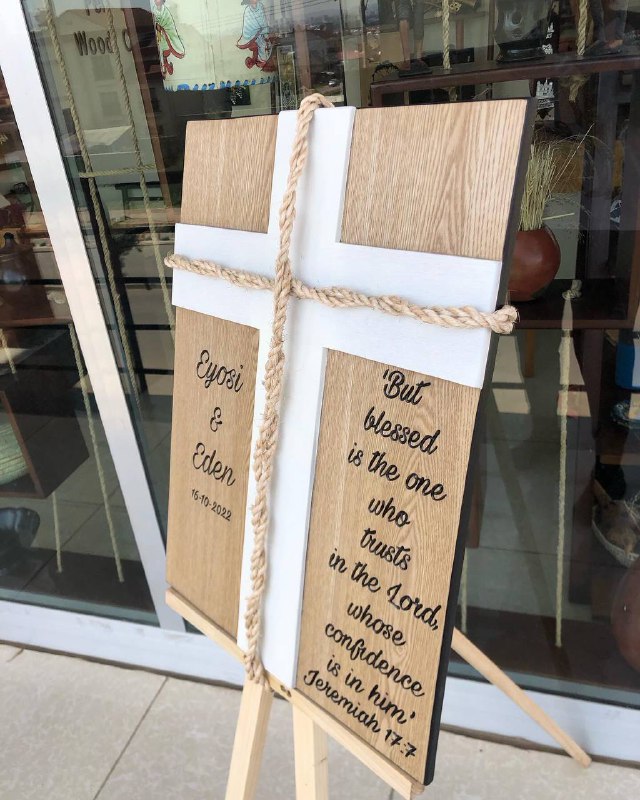 Wood
Eyosi
&
Eden
16-10-2022
'But
blessed
is the one
who
trusts
in the Lord,
whose
confidence
is in him'
Jeremiah 17:7